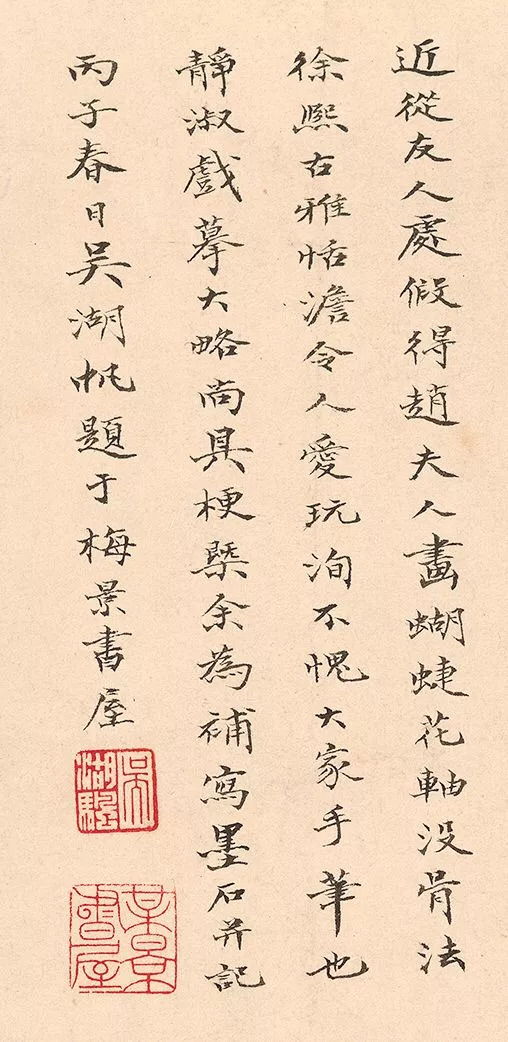 近從友人處假得趙夫人畫蝴蜨花軸没骨法
徐熙古雅恬澹令人愛玩洵不愧大家手筆也
靜淑戲摹大略尚具梗槩余為補寫墨石并記
丙子春日吳湖帆題于梅景書屋
吳湖驄
某景書屋